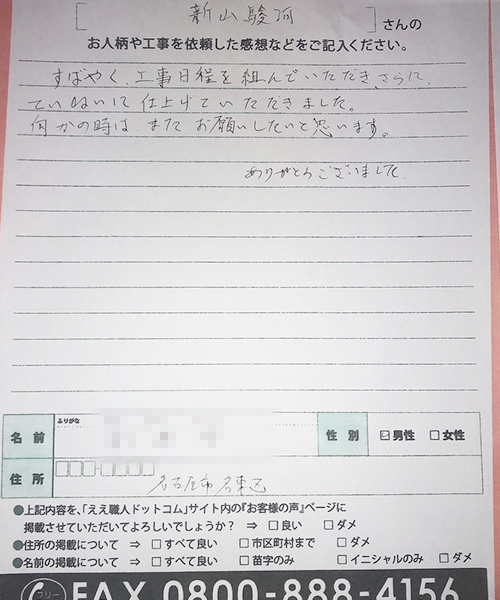 [ 新山駿河 ] さんの
お人柄や工事を依頼した感想などをご記入ください。
すばやく、工事日程を組んでいただき、さらに、
ていねいに仕上げていただきました。
何かの時は、また お願いしたいと思います。
ありがとうございました
ふりがな
名前 性別 ☑男性 □女性
住所 名古屋市名東区
●上記内容を、「ええ職人ドットコム」サイト内の『お客様の声』ページに
掲載させていただいてよろしいでしょうか？ ⇒ □良い □ダメ
●住所の掲載について ⇒ □すべて良い □市区町村まで □ダメ
●名前の掲載について ⇒ □すべて良い □苗字のみ □イニシャルのみ □ダメ
フリー FAX 0800-888-4156